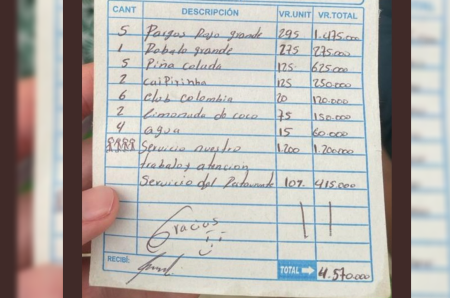 CANT DESCRIPCIÓN VR.UNIT VR.TOTAL
5 Pargos Rojo grande 295 1.475.000
1 Robalo grande 275 275.000
5 Piña colada 125 625.000
2 caipirinha 125 250.000
6 club colombia 20 120.000
2 limonada de coco 75 150.000
4 agua 15 60.000
Servicio nuestro 1.200 1.200.000
trabalo y atencion
Servicio del 10% 415.000
Gracias
RECIBÍ:
TOTAL 4.570.000